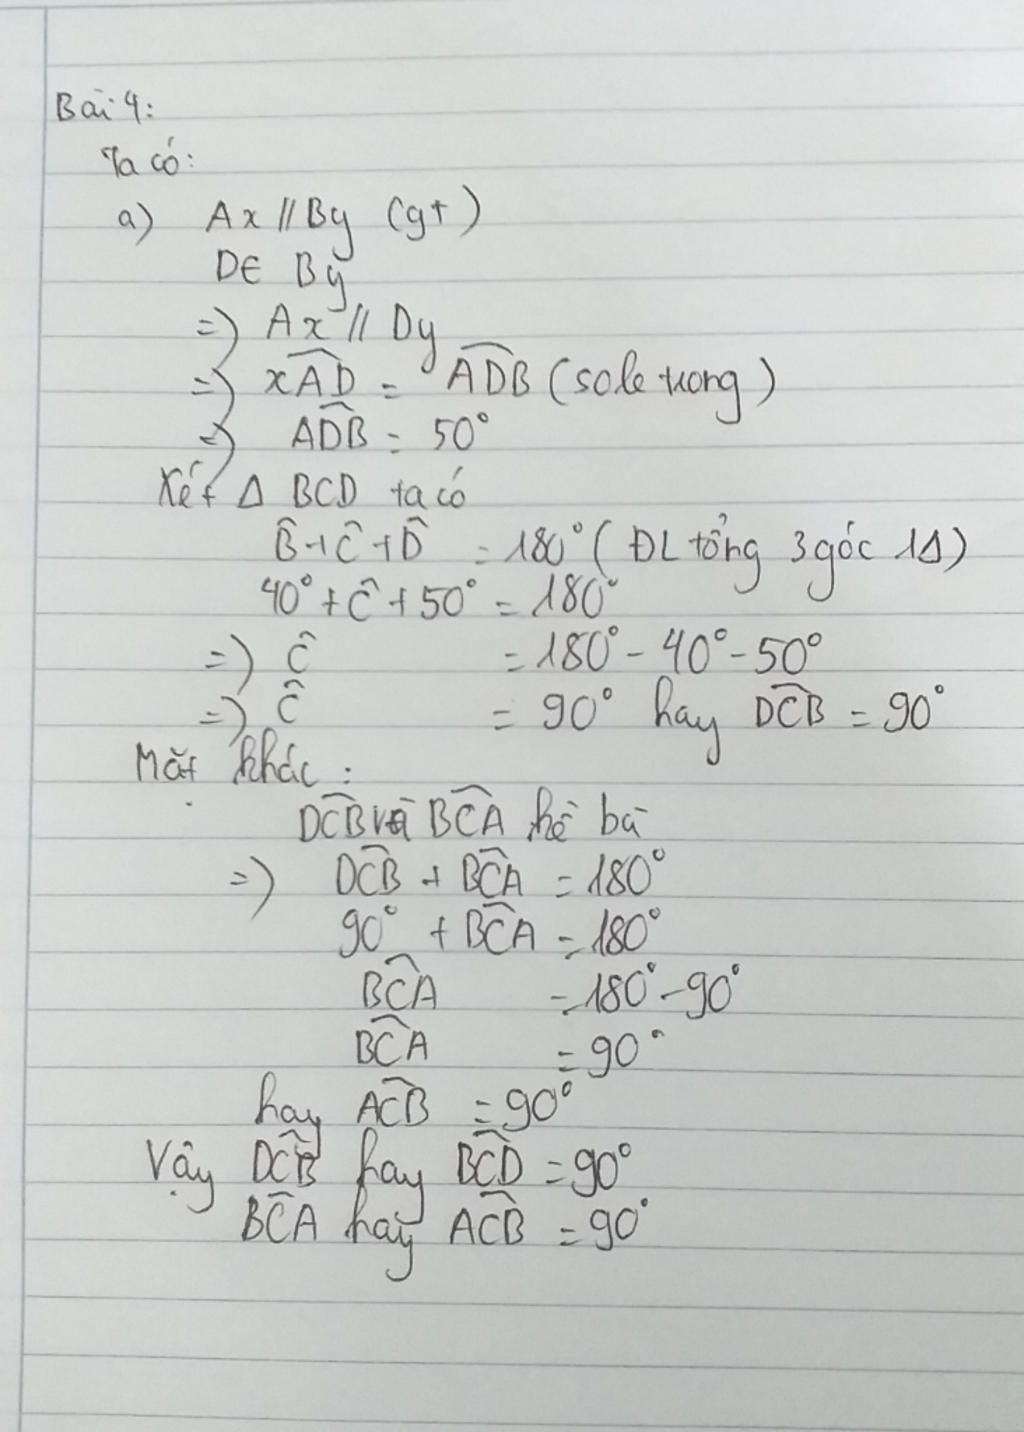 Bài 4:
Ta có:
a) Ax // By (gt)
D∈ By
=> Ax // Dy
=> xAD̂ = ADB̂ (so le trong)
=> ADB̂ = 50°
Xét Δ BCD ta có
B̂ + Ĉ + D̂ = 180° (ĐL tổng 3 góc 1Δ)
40° + Ĉ + 50° = 180°
=> Ĉ = 180° - 40° - 50°
=> Ĉ = 90° hay DCB̂ = 90°
Mặt khác:
DCB̂ và BCÂ kề bù
=> DCB̂ + BCÂ = 180°
90° + BCÂ = 180°
BCÂ = 180° - 90°
BCÂ = 90°
hay ACB̂ = 90°
Vậy DCB̂ hay BCD̂ = 90°
BCÂ hay ACB̂ = 90°